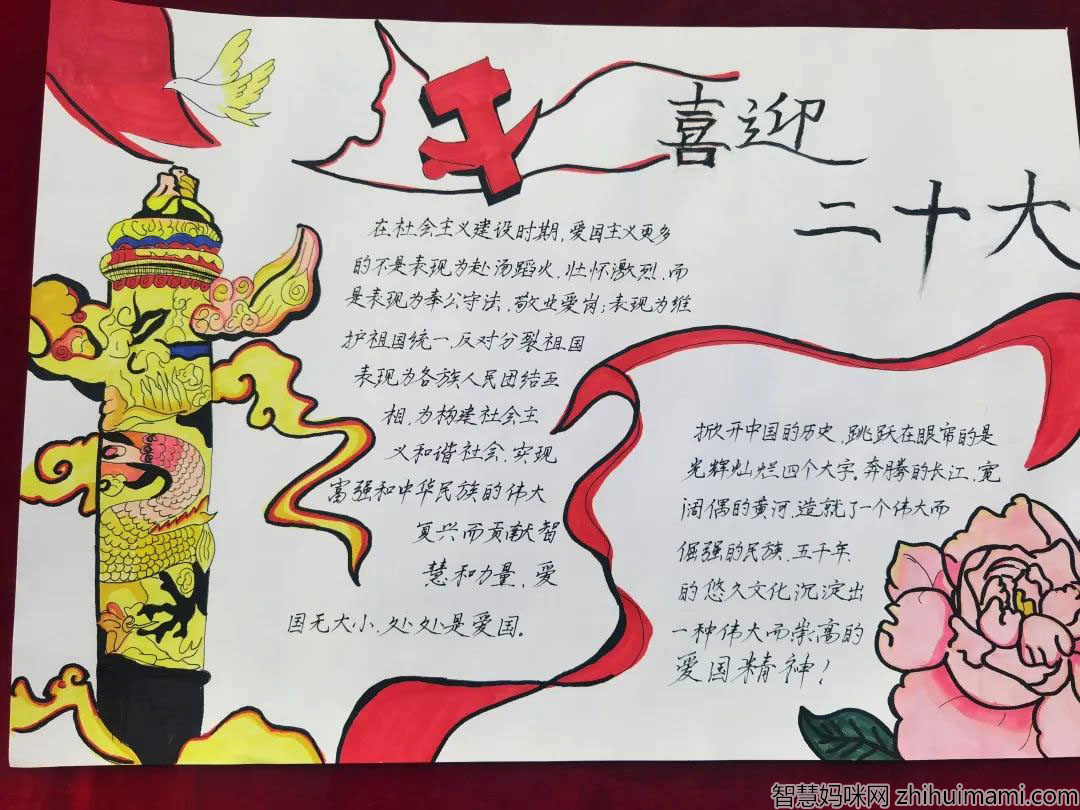 喜迎
二十大
在社会主义建设时期,爱国主义更多
的不是表现为赴汤蹈火,壮怀激烈,而
是表现为奉公守法,敬业爱岗;表现为维
护祖国统一,反对分裂祖国
表现为各族人民团结互
相,为构建社会主
义和谐社会,实现
富强和中华民族的伟大
复兴而贡献智
慧和力量,爱
国无大小,处处是爱国。
掀开中国的历史,跳跃在眼帘的是
光辉灿烂四个大字。奔腾的长江,宽
阔偶的黄河,造就了一个伟大而
倔强的民族,五千年
的悠久文化沉淀出
一种伟大而崇高的
爱国精神!
智慧妈咪网 zhihuimami.com